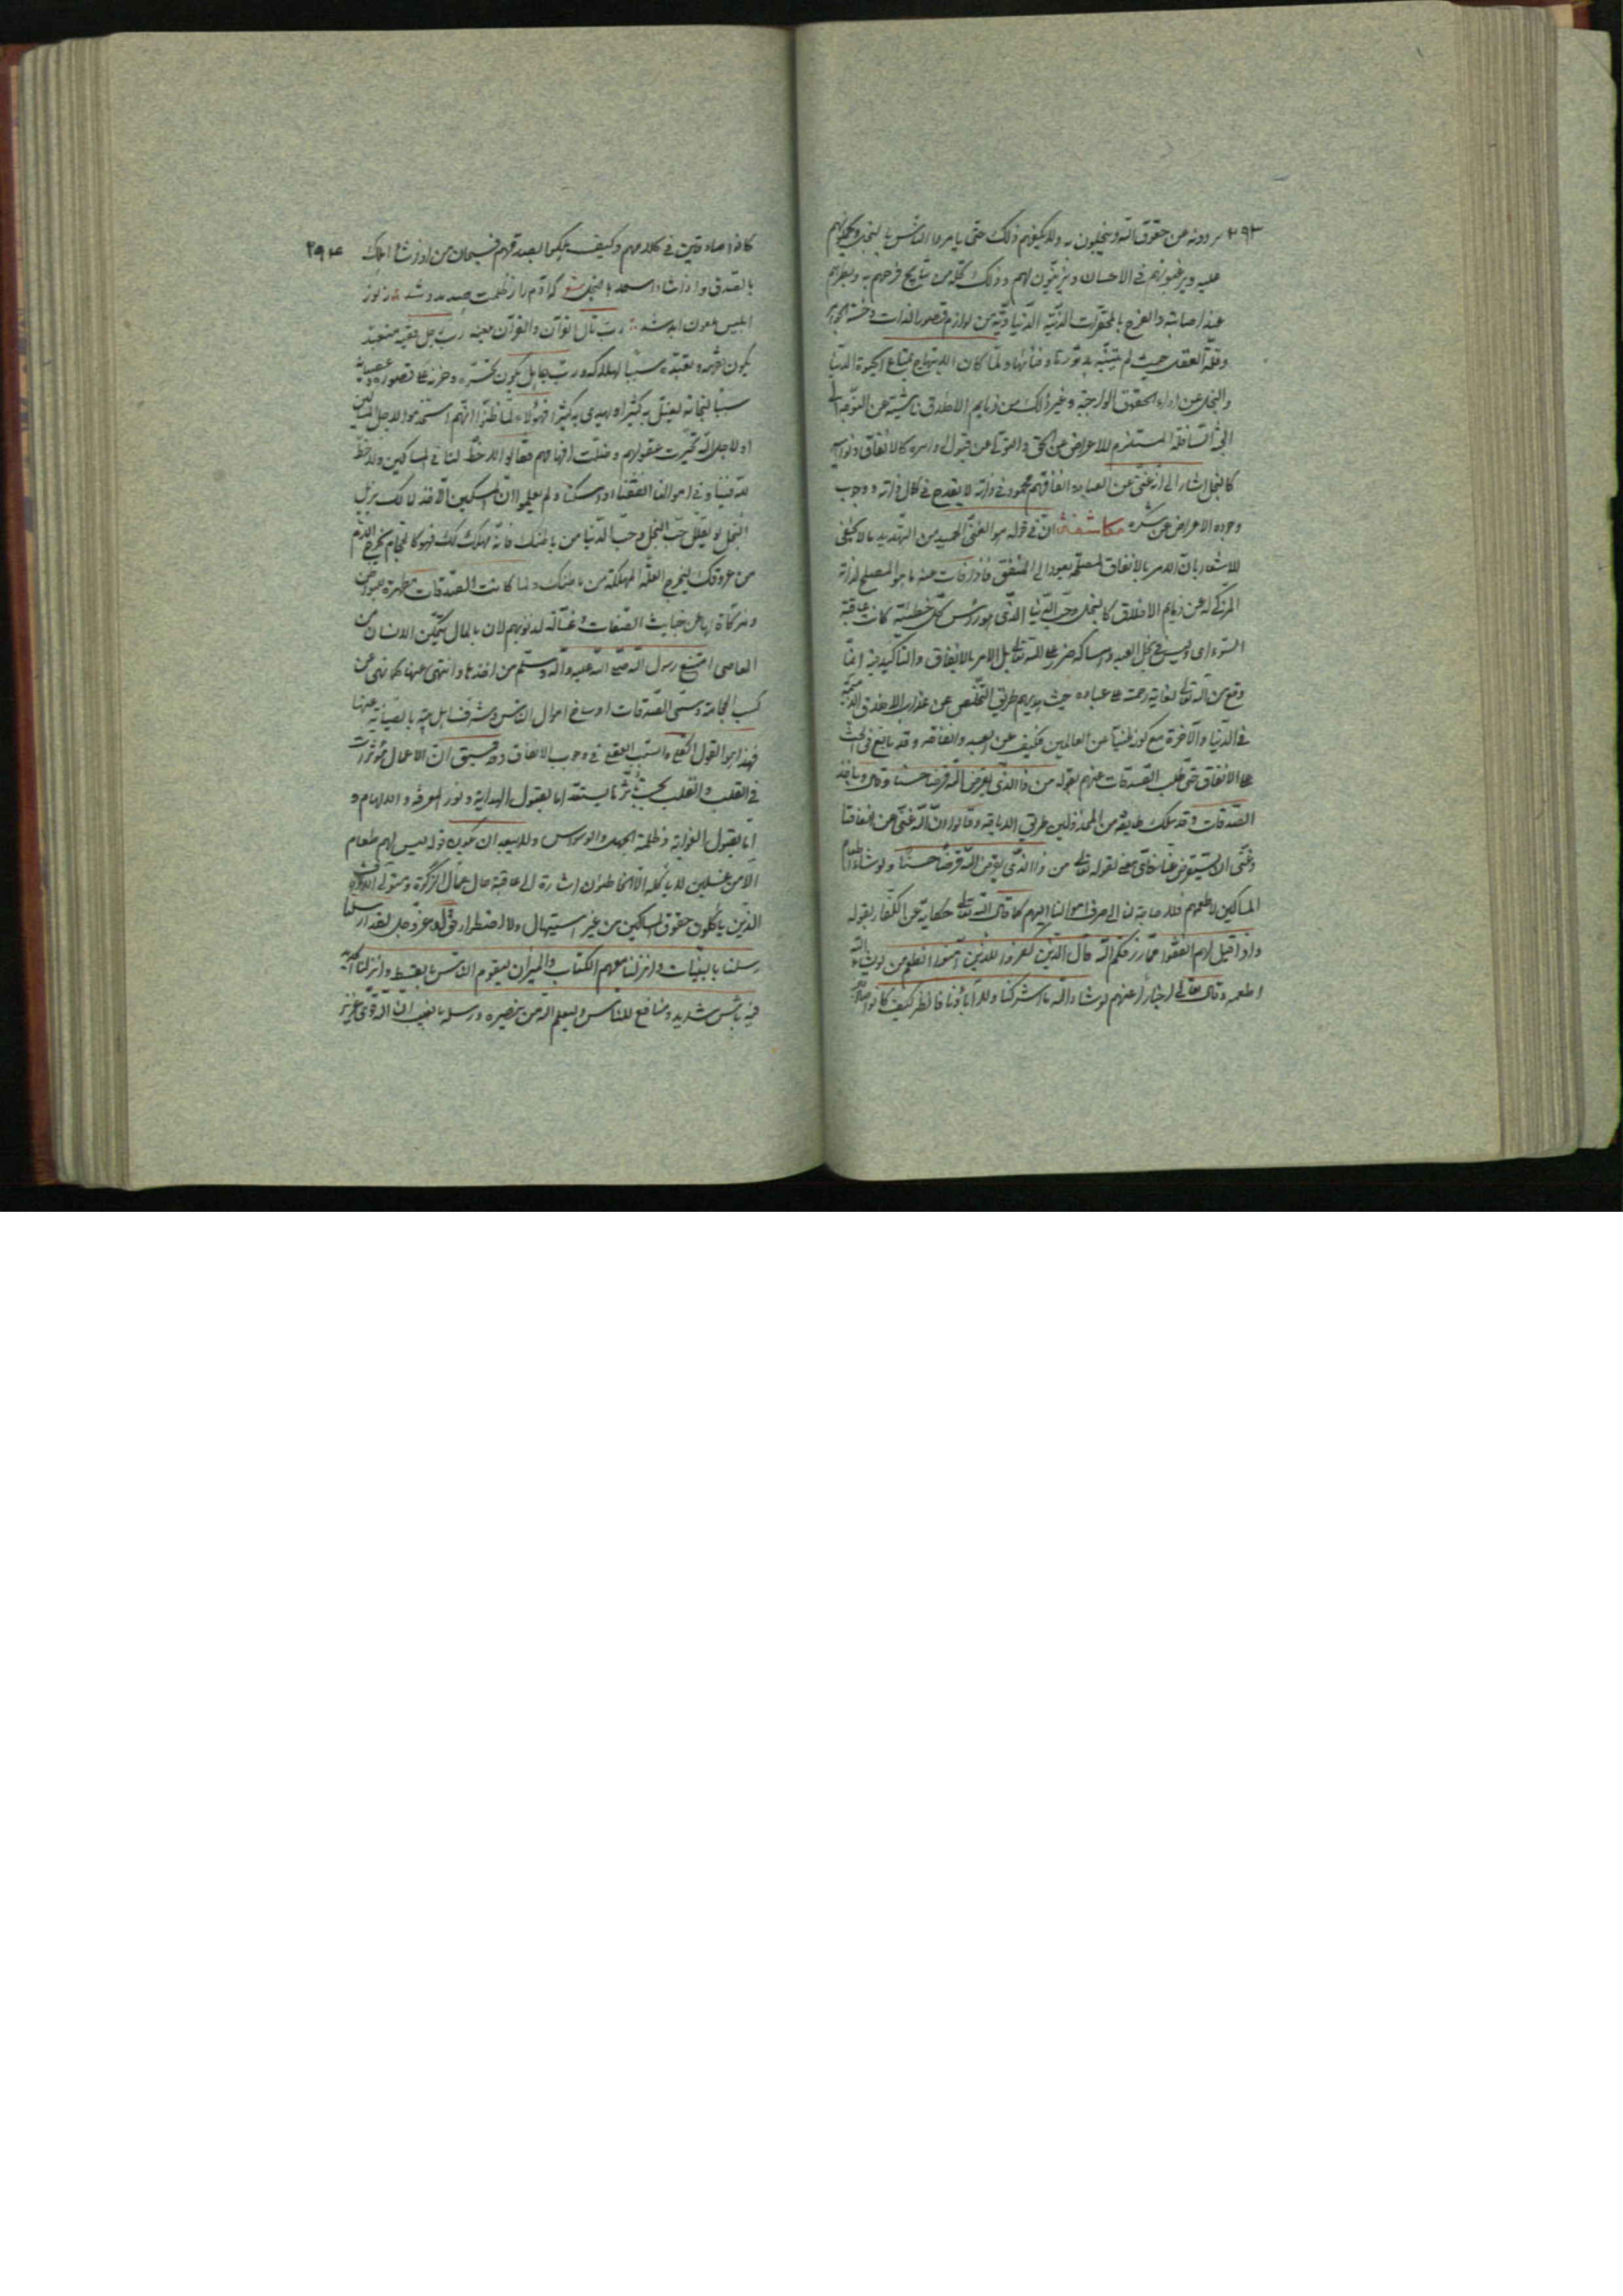 ٢٩٣ يردونه عن حقوق الله ويبخلون به ولا يكفيهم ذلك حتى يامروا الناس بالبخل ويحملونهم
عليه ويرغبونهم فى الامساك ويزينون لهم وذلك كله من نتايج فرحهم به وبطرهم
عند اصابته والفرح بالمحقرات الدنية الدنياوية من لوازم قصور الذات وخسة الجوهر
وقلة العقل حيث لم يتنبه بدثورها وفنائها ولما كان الابتهاج بمتاع الحيوة الدنيا
والبخل عن اداء الحقوق الواجبة وغير ذلك من ذمايم الاخلاق ناشية عن التوجه الى
الجنبة السافلة المستلزم للاعراض عن الحق والتولى عن قبول اوامره كالانفاق ونواهيه
كالبخل اشار الى انه غنى عن العباد وانفاقهم محمود فى ذاته لا يقدح فى كمال ذاته ووجوب
وجوده الاعراض عن شكره مكاشفة ان فى قوله هو الغنى الحميد من التهديد ما لا يخفى
للاشعار بان الامر بالانفاق لمصلحة يعود الى المنفق فاذا فات عنه ما هو المصلح لذاته
المزكى له عن ذمايم الاخلاق كالبخل وحب الدنيا الذى هو راس كل خطيئة كانت عاقبة
السوءى وليس فى بخل العبد وامساكه ضرر على الله تعالى بل الامر بالانفاق والتاكيد فيه انما
وقع من الله تعالى لغاية رحمته على عباده حيث يهديهم طريق التخلص عن عذاب الاخلاق الذميمة
فى الدنيا والآخرة مع كونه غنيا عن العالمين فكيف عن العبد وانفاقه وقد بالغ فى الحث
على الانفاق حتى طلب الصدقات عنهم بقوله من ذا الذى يقرض الله قرضا حسنا وقال وياخذ
الصدقات وقد سلك طايفة من المخذولين طريق الاباحة وقالوا ان الله غنى عن انفاقنا
وغنى ان يستقرض منا فاى معنى لقوله تعالى من ذا الذى يقرض الله قرضا حسنا ولو شاء اطعام
المساكين لاطعمهم فلا حاجة لنا الى صرف اموالنا اليهم كما قال الله تعالى حكاية عن الكفار بقوله
واذا قيل لهم انفقوا مما رزقكم الله قال الذين كفروا للذين آمنوا انطعم من لو يشاء الله
اطعمه وقال تعالى اخبارا عنهم لو شاء الله ما اشركنا ولا آباؤنا فانظر كيف كانوا
٢٩٤ كانوا صادقين فى كلامهم وكيف هلكوا بصدقهم فسبحان من اذا شاء اهلك
بالصدق واذا شاء اسعد بالجهل شعر كه آدم را ز ظلمت صد مدد شد ز نور
ابليس ملعون ابد شد رب تال القرآن والقرآن يلعنه رب رجل فقيه متعبد
يكون فهمه وتعبده سببا لهلاكه ورب جاهل يكون تحسره وحزنه على قصوره وعصيانه
سببا لنجاته يضل به كثيرا ويهدى به كثيرا فهؤلاء لما ظنوا انهم استخدموا لاجل المساكين
او لاجل الله تحيرت عقولهم وضلت افهامهم فقالوا لا حظ لنا فى المساكين ولا حظ
لله فينا وفى اموالنا انفقنا او امسكنا ولم يعلموا ان المسكين الآخذ لمالك يزيل
البخل حب البخل وحب الدنيا من باطنك فانه مهلك لك فهو كالحجام يخرج الدم
من عروقك ليخرج العلة المهلكة من باطنك ولما كانت الصدقات مطهرة
ومزكاة لها عن خبايث الصفات وغسالة لذنوبهم لان بالمال يتمكن الانسان من
المعاصى امتنع رسول الله صلى الله عليه وآله وسلم من اخذها وانتهى عنها كما نهى عن
كسب الحجامة وسمى الصدقات اوساخ اموال الناس وشرف اهل بيته بالصيانة عنها
فهذا هو القول والسبب العقلى فى وجوب الانفاق وقد سبق ان الاعمال مؤثرات
فى القلب والقلب بحسب تاثرها يستعد اما بقبول الهداية ونور المعرفة والالهام و
اما بقبول الغواية وظلمة الجهل والوسواس ولا يبعد ان يكون قوله ليس لهم طعام
الا من غسلين لا ياكله الا الخاطئون اشارة الى عاقبة حال عمال الزكوة ومتولى
الذين ياكلون حقوق المساكين من غير استيهال ولا اضطرار قوله عز وجل لقد ارسلنا
رسلنا بالبينات وانزلنا معهم الكتاب والميزان ليقوم الناس بالقسط وانزلنا الحديد
فيه باس شديد ومنافع للناس وليعلم الله من ينصره ورسله بالغيب ان الله قوى عزيز